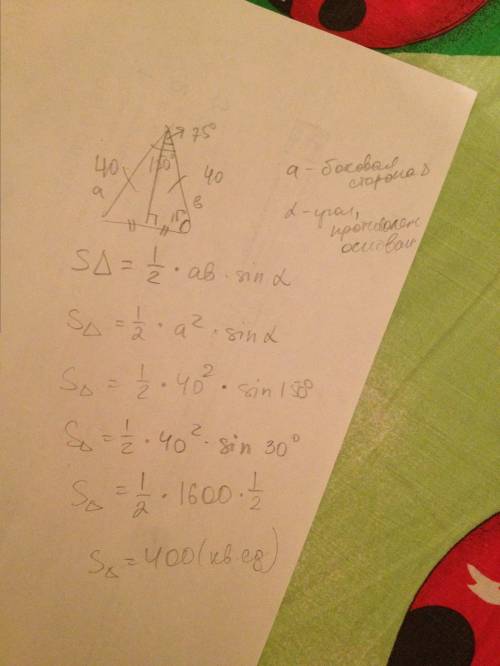 75°
150°
40
40
a
в
15°
a - боковая
сторона
α - угол,
противолеж
основан
S△ = 1/2 · ab · sin α
S△ = 1/2 · a² · sin α
S△ = 1/2 · 40² · sin 150°
S△ = 1/2 · 40² · sin 30°
S△ = 1/2 · 1600 · 1/2
S△ = 400 (кв.ед)